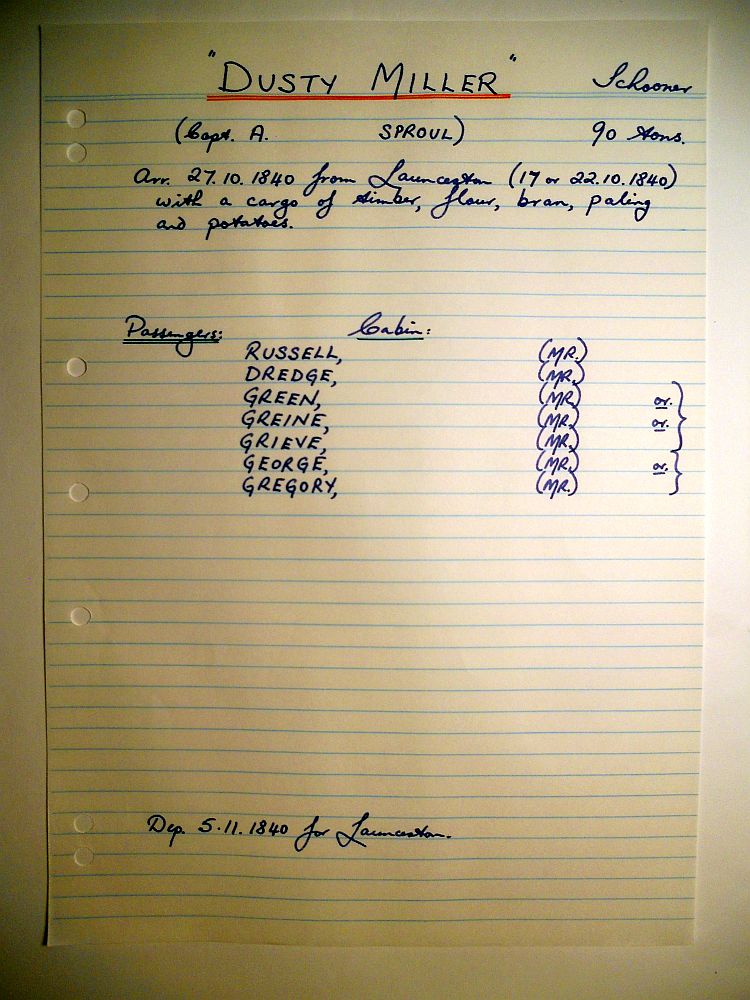 "DUSTY MILLER" Schooner
(Capt. A. SPROUL) 90 tons.
Arr. 27.10.1840 from Launceston (17 or 22.10.1840)
with a cargo of timber, flour, bran, paling
and potatoes.
Passengers: Cabin:
RUSSELL, (MR.)
DREDGE, (MR.)
GREEN, (MR.) or.
GREINE, (MR.) or.
GRIEVE, (MR.)
GEORGE, (MR.) or.
GREGORY, (MR.)
Dep. 5.11.1840 for Launceston.